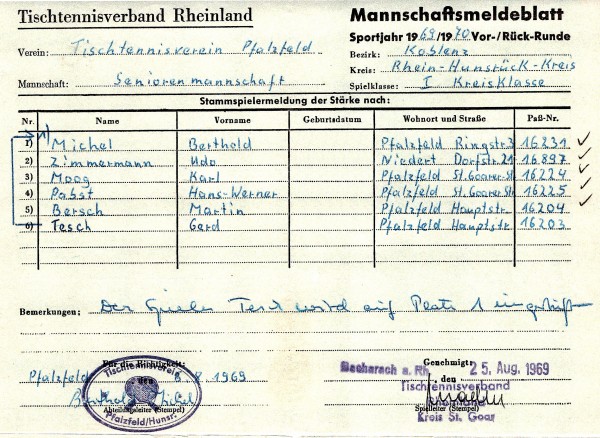 Tischtennisverband Rheinland
Mannschaftsmeldeblatt
Sportjahr 1969/1970 Vor-/Rück-Runde
Verein: Tischtennisverein Pfalzfeld
Bezirk: Koblenz
Kreis: Rhein-Hunsrück-Kreis
Mannschaft: Seniorenmannschaft
Spielklasse: I Kreisklasse
Stammspielermeldung der Stärke nach:
Nr. Name Vorname Geburtsdatum Wohnort und Straße Paß-Nr.
1) Michel Berthold Pfalzfeld Ringstr. 3 16231 ✓
2) Zimmermann Udo Niedert Dorfstr. 21 16897 ✓
3) Moog Karl Pfalzfeld St. Goarer St. 16224 ✓
4) Pabst Hans-Werner Pfalzfeld St. Goarer St. 16225 ✓
5) Bersch Martin Pfalzfeld Hauptstr. 16204 ✓
6) Tesch Gerd Pfalzfeld Hauptstr. 16203
Bemerkungen: Der Spieler Tesch wird auf Platz 1 eingestuft
Für die Richtigkeit:
Genehmigt:
Pfalzfeld den 8 1969
Bacharach a. Rh. den 25. Aug. 1969
Tischtennisverein
Pfalzfeld/Hunsr.
Abteilungsleiter (Stempel)
Tischtennisverband
Rheinland
Spielleiter (Stempel)
Kreis St. Goar